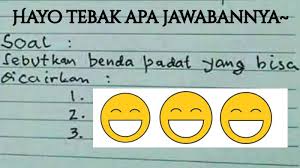 Hayo tebak apa jawabannya~
Soal :
Sebutkan benda padat yang bisa
dicairkan :
1.
2.
3.